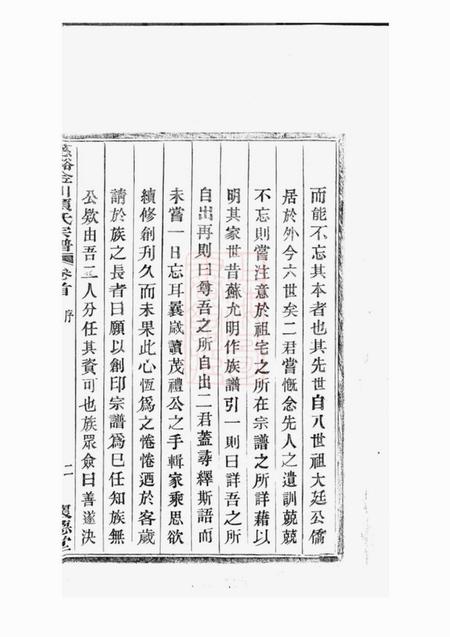 而能不忘其本者也其先世自八世祖大廷公僑
居於外今六世矣二君嘗慨念先人之遺訓兢兢
不忘則嘗注意於祖宅之所在宗譜之所詳藉以
明其家世昔蘇允明作族譜引一則曰詳吾之所
自出再則曰尊吾之所自出二君蓋尋繹斯語而
未嘗一日忘耳曩歲讀茂禮公之手輯家乘思欲
續修創刋久而未果此心恆為之惓惓迺於客歲
請於族之長者曰願以創印宗譜為巳任知族無
公欵由吾二人分任其資可也族眾僉曰善遂決
慈谿金川項氏宗譜 卷首 序 二